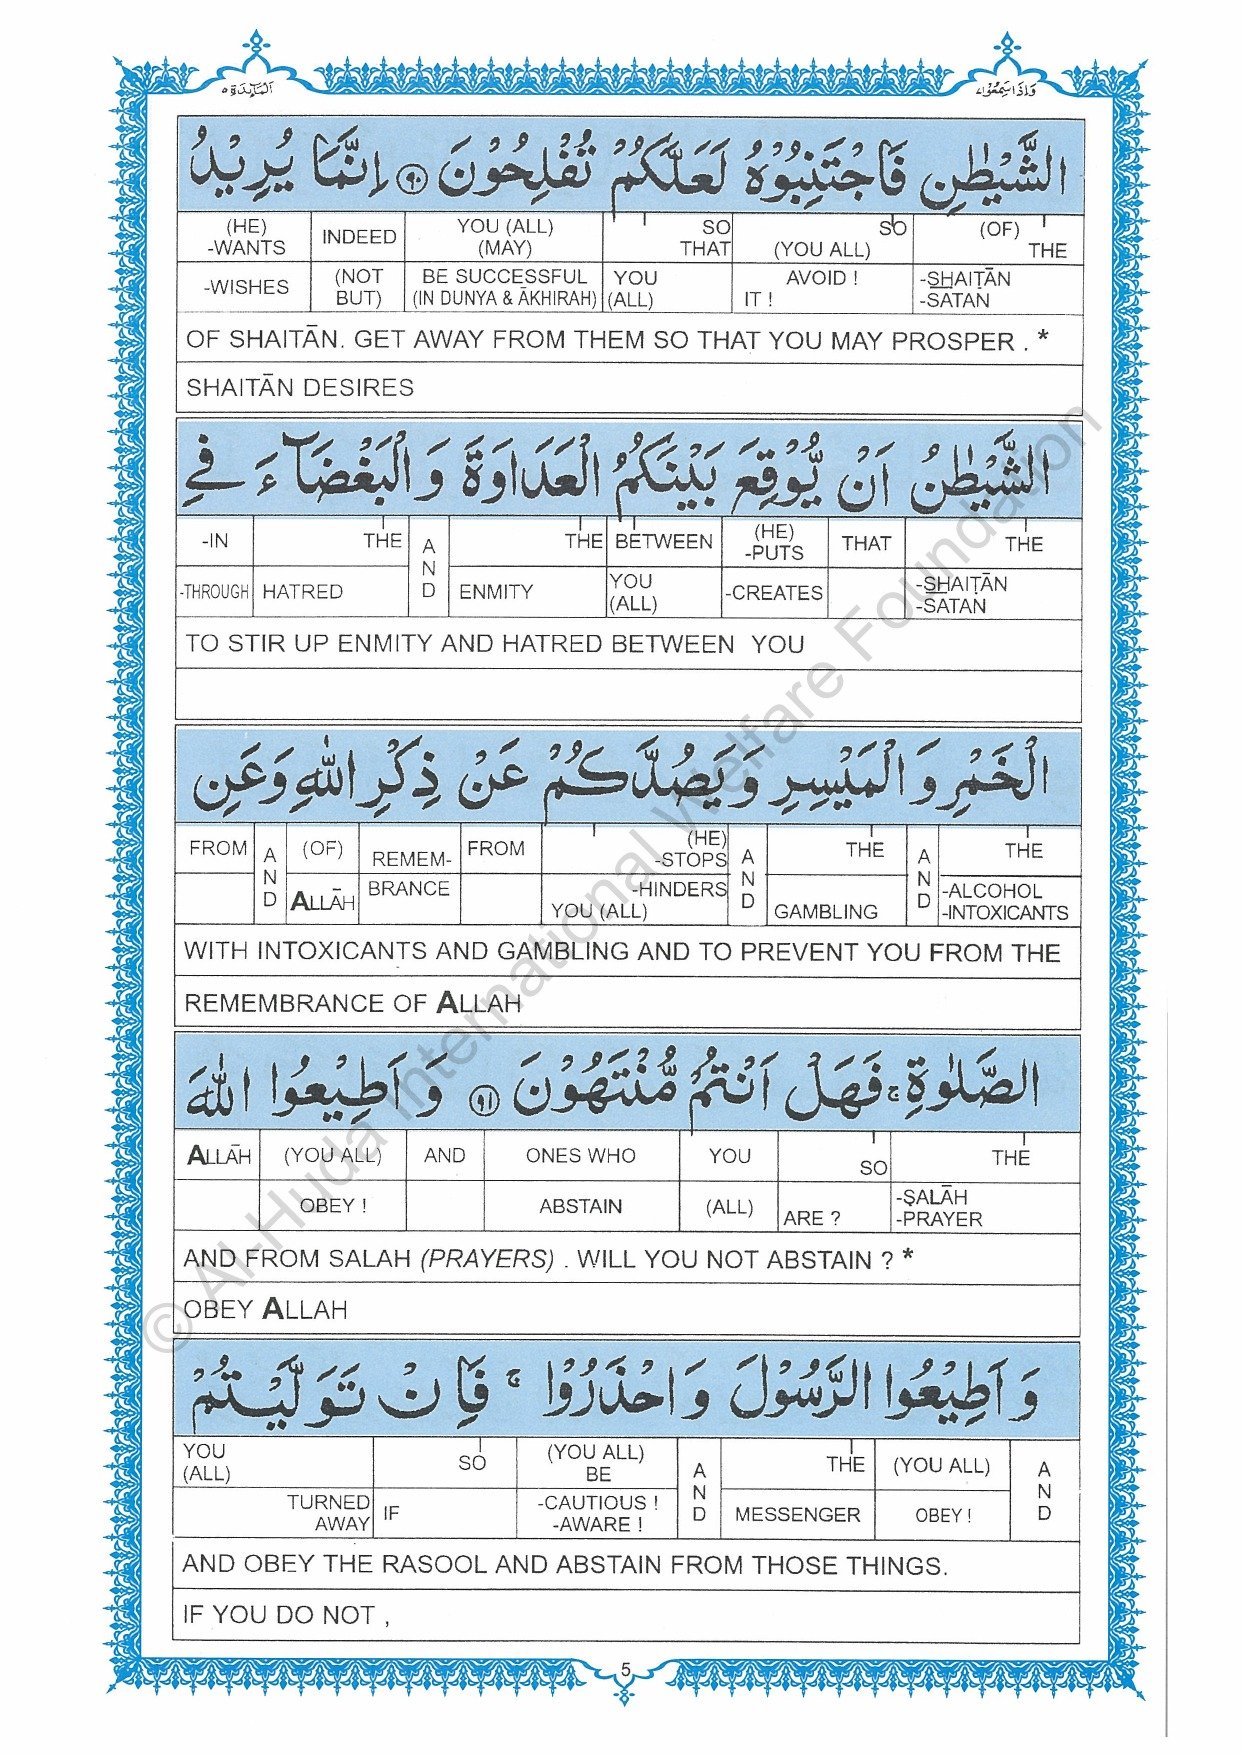 المآئدة ٥
واذا سمعوا ٧
الشَّيْطٰنِ فَاجْتَنِبُوْهُ لَعَلَّكُمْ تُفْلِحُوْنَ ﴿٩٠﴾ اِنَّمَا يُرِيْدُ
(HE) -WANTS INDEED YOU (ALL) (MAY) SO THAT SO (YOU ALL) (OF) THE
-WISHES (NOT BUT) BE SUCCESSFUL (IN DUNYA & ĀKHIRAH) YOU (ALL) AVOID ! IT ! -SHAITĀN -SATAN
OF SHAITĀN. GET AWAY FROM THEM SO THAT YOU MAY PROSPER . *
SHAITĀN DESIRES
الشَّيْطٰنُ اَنْ يُّوْقِعَ بَيْنَكُمُ الْعَدَاوَةَ وَالْبَغْضَآءَ فِي
-IN THE AND THE BETWEEN (HE) -PUTS THAT THE
-THROUGH HATRED ENMITY YOU (ALL) -CREATES -SHAIṬĀN -SATAN
TO STIR UP ENMITY AND HATRED BETWEEN YOU
الْخَمْرِ وَالْمَيْسِرِ وَيَصُدَّكُمْ عَنْ ذِكْرِ اللّٰهِ وَعَنِ
FROM AND (OF) REMEM- FROM (HE) -STOPS AND THE AND THE
ALLĀH BRANCE -HINDERS YOU (ALL) GAMBLING -ALCOHOL -INTOXICANTS
WITH INTOXICANTS AND GAMBLING AND TO PREVENT YOU FROM THE
REMEMBRANCE OF ALLAH
الصَّلٰوةِ ۚ فَهَلْ اَنْتُمْ مُّنْتَهُوْنَ ﴿٩١﴾ وَاَطِيْعُوا اللّٰهَ
ALLĀH (YOU ALL) AND ONES WHO YOU SO THE
OBEY ! ABSTAIN (ALL) ARE ? -ṢALĀH -PRAYER
AND FROM SALAH (PRAYERS) . WILL YOU NOT ABSTAIN ? *
OBEY ALLAH
وَاَطِيْعُوا الرَّسُوْلَ وَاحْذَرُوْا ۚ فَاِنْ تَوَلَّيْتُمْ
YOU (ALL) SO (YOU ALL) BE AND THE (YOU ALL) AND
TURNED AWAY IF -CAUTIOUS ! -AWARE ! MESSENGER OBEY !
AND OBEY THE RASOOL AND ABSTAIN FROM THOSE THINGS.
IF YOU DO NOT ,
5
© Al-Huda International Welfare Foundation